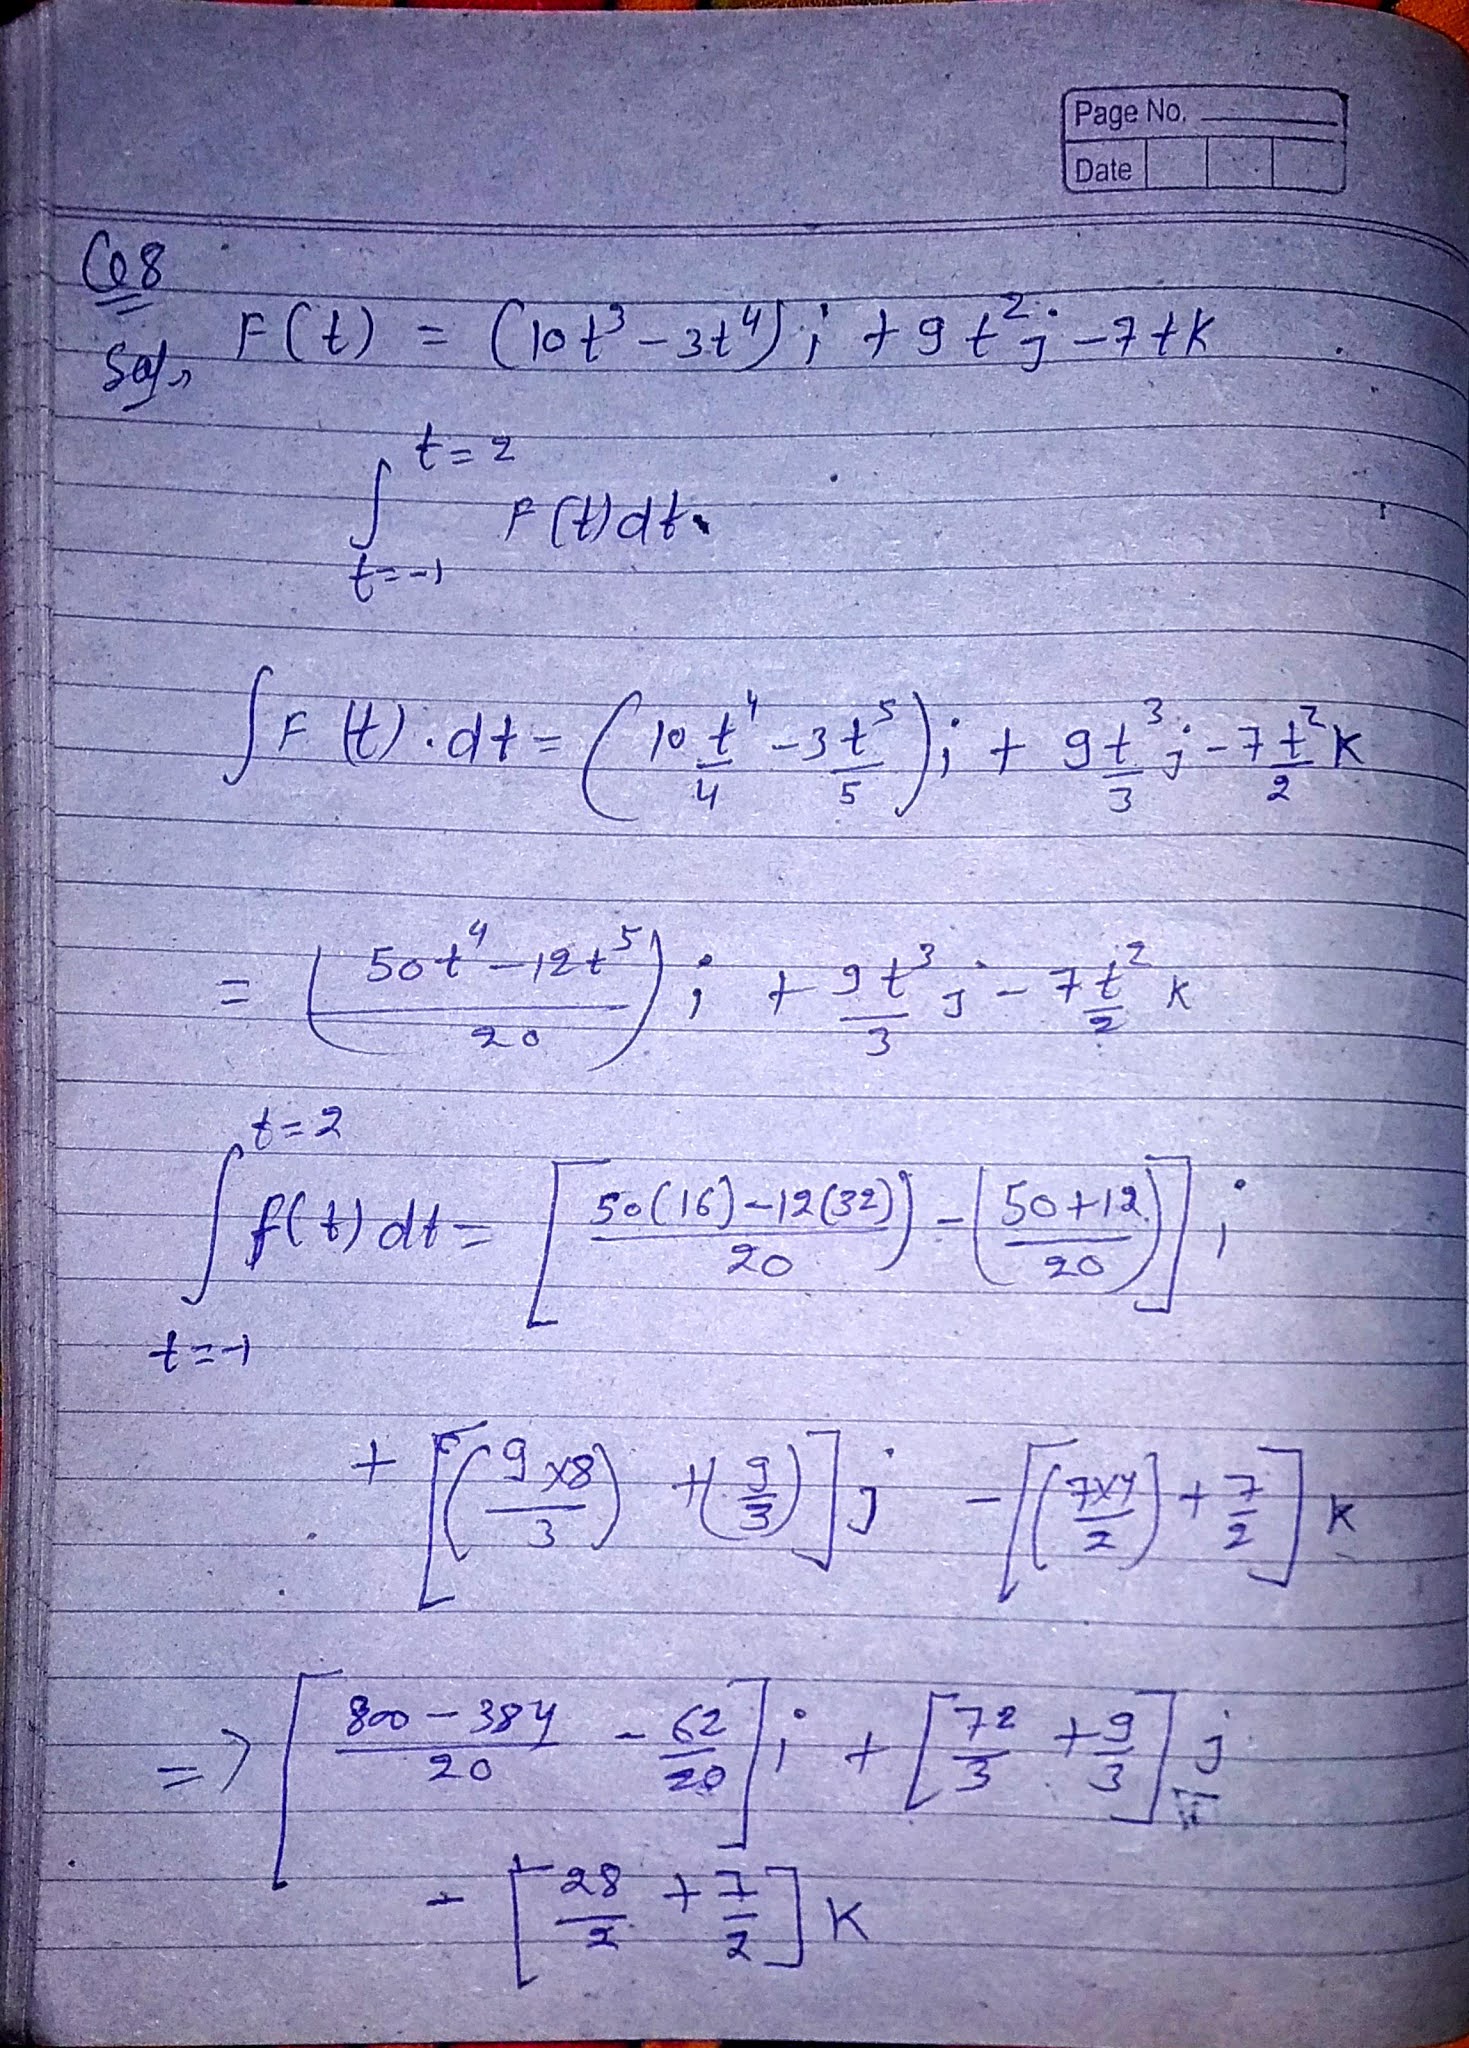 Page No.
Date
Q8
Solⁿ F(t) = (10t³ - 3t⁴)i + 9t²j - 7tk
t=2
∫ F(t)dt.
t=-1
∫F(t).dt = (10t⁴/4 - 3t⁵/5)i + 9t³/3 j - 7t²/2 k
= (50t⁴ - 12t⁵/20)i + 9t³/3 j - 7t²/2 k
t=2
∫ f(t)dt = [50(16) - 12(32)/20) - (50+12/20)]i
t=-1
+ [(9x8/3) + (9/3)]j - [(7x4/2) + 7/2]k
=> [800 - 384/20 - 62/20]i + [72/3 + 9/3]j
- [28/2 + 7/2]k